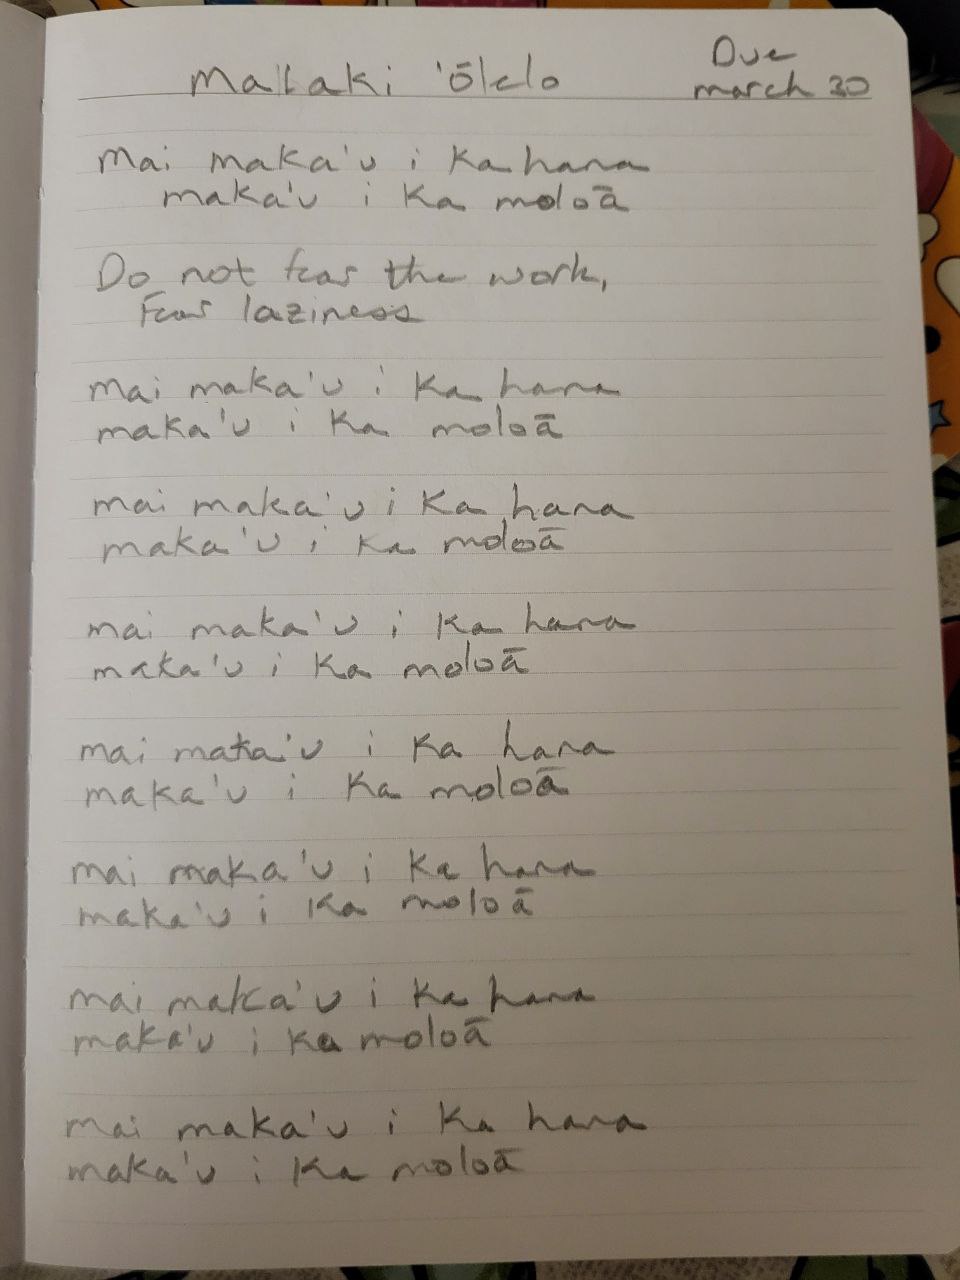 Mallaki 'ōlelo
Due
march 30
Mai maka'u i Ka hana
maka'u i Ka moloā
Do not fear the work,
Fear laziness
Mai maka'u i Ka hana
maka'u i Ka moloā
mai maka'u i Ka hana
maka'u i Ka moloā
mai maka'u i Ka hana
maka'u i Ka moloā
mai maka'u i Ka hana
maka'u i Ka moloā
mai maka'u i Ka hana
maka'u i Ka moloā
mai maka'u i Ka hana
maka'u i Ka moloā
mai maka'u i Ka hana
maka'u i Ka moloā